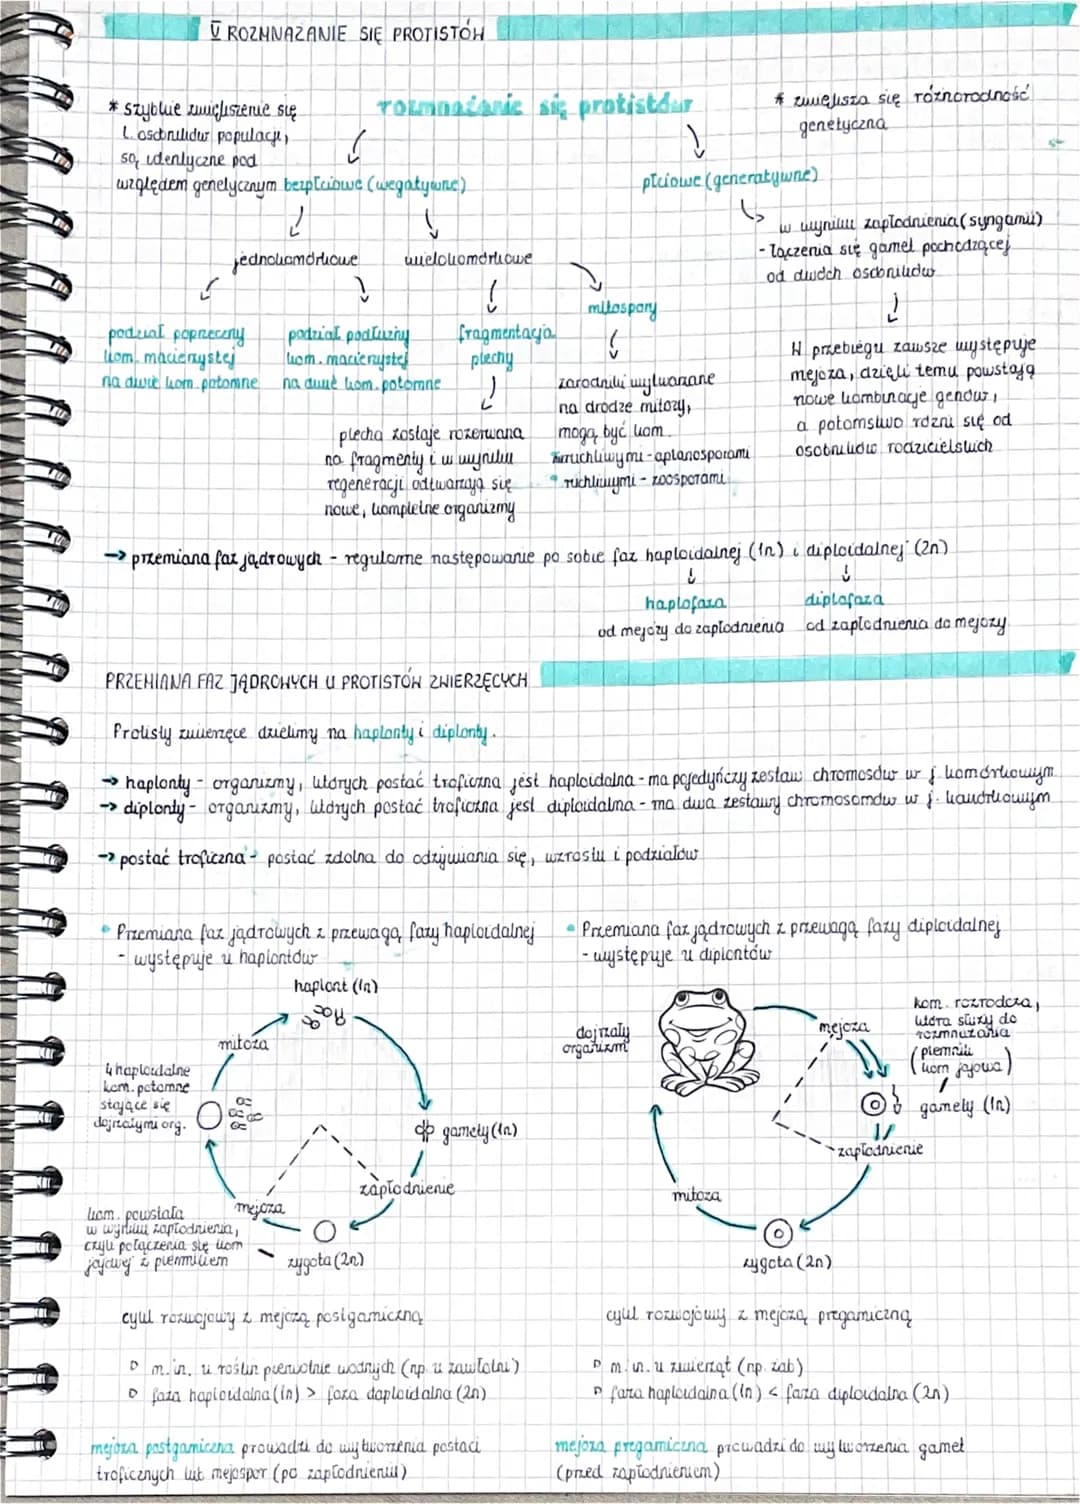 V ROZMNAŻANIE SIĘ PROTISTÓW
rozmnażanie się protistów
* szybkie zwiększenie się
l. osobników populacji,
są identyczne pod
względem genetycznym
bezpłciowe (wegatywne)
* zwiększa się różnorodność
genetyczna
płciowe (generatywne)
w wyniku zapłodnienia (syngamii)
- łączenia się gamet pochodzącej
od dwóch osobników
jednokomórkowe
wielokomórkowe
podział poprzeczny
kom. macierzystej
na dwie kom. potomne
podział podłużny
kom. macierzystej
na dwie kom. potomne
fragmentacja
plechy
plecha zostaje rozerwana
na fragmenty i w wyniku
regeneracji odtwarzają się
nowe, kompletne organizmy
mitospory
zarodniki wytwarzane
na drodze mitozy,
mogą być kom.
nieruchliwymi - aplanosporami
• ruchliwymi - zoosporami
W przebiegu zawsze występuje
mejoza, dzięki temu powstają
nowe kombinacje genów,
a potomstwo różni się od
osobników rodzicielskich
→ przemiana faz jądrowych - regularne następowanie po sobie faz haploidalnej (1n) i diploidalnej (2n)
haplofaza
od mejozy do zapłodnienia
diplofaza
od zapłodnienia do mejozy
PRZEMIANA FAZ JĄDROWYCH U PROTISTÓW ZWIERZĘCYCH
Protisty zwierzęce dzielimy na haplonty i diplonty.
→ haplonty - organizmy, których postać troficzna jest haploidalna - ma pojedyńczy zestaw chromosów w j. komórkowym
→ diplonty - organizmy, których postać troficzna jest diploidalna - ma dwa zestawy chromosomów w j. komórkowym
→ postać troficzna - postać zdolna do odżywiania się, wzrostu i podziałów
• Przemiana faz jądrowych z przewagą fazy haploidalnej
- występuje u haplontów
haplont (1n)
mitoza
4 haploidalne
kom. potomne
stające się
dojrzałymi org.
gamety (1n)
zapłodnienie
mejoza
kom. powstała
w wyniku zapłodnienia,
czyli połączenia się kom
jajowej z plemnikiem
zygota (2n)
cykl rozwojowy z mejozą postgamiczną
▷ m.in. u roślin pierwotnie wodnych (np. u zawłotni)
▷ faza haploidalna (1n) > faza daploidalna (2n)
mejoza postgamiczna prowadzi do wytworzenia postaci
troficznych lub mejospor (po zapłodnieniu)
• Przemiana faz jądrowych z przewagą fazy diploidalnej
- występuje u diplontów
dojrzały
organizm
mejoza
kom. rozrodcza,
która służy do
rozmnażania
(plemnik
kom jajowa)
gamety (1n)
zapłodnienie
mitoza
zygota (2n)
cykl rozwojowy z mejozą pregamiczną
▷ m.in. u zwierząt (np. żab)
▷ faza haploidalna (1n) < faza diploidalna (2n)
mejoza pregamiczna prowadzi do wytworzenia gamet
(przed zapłodnieniem)